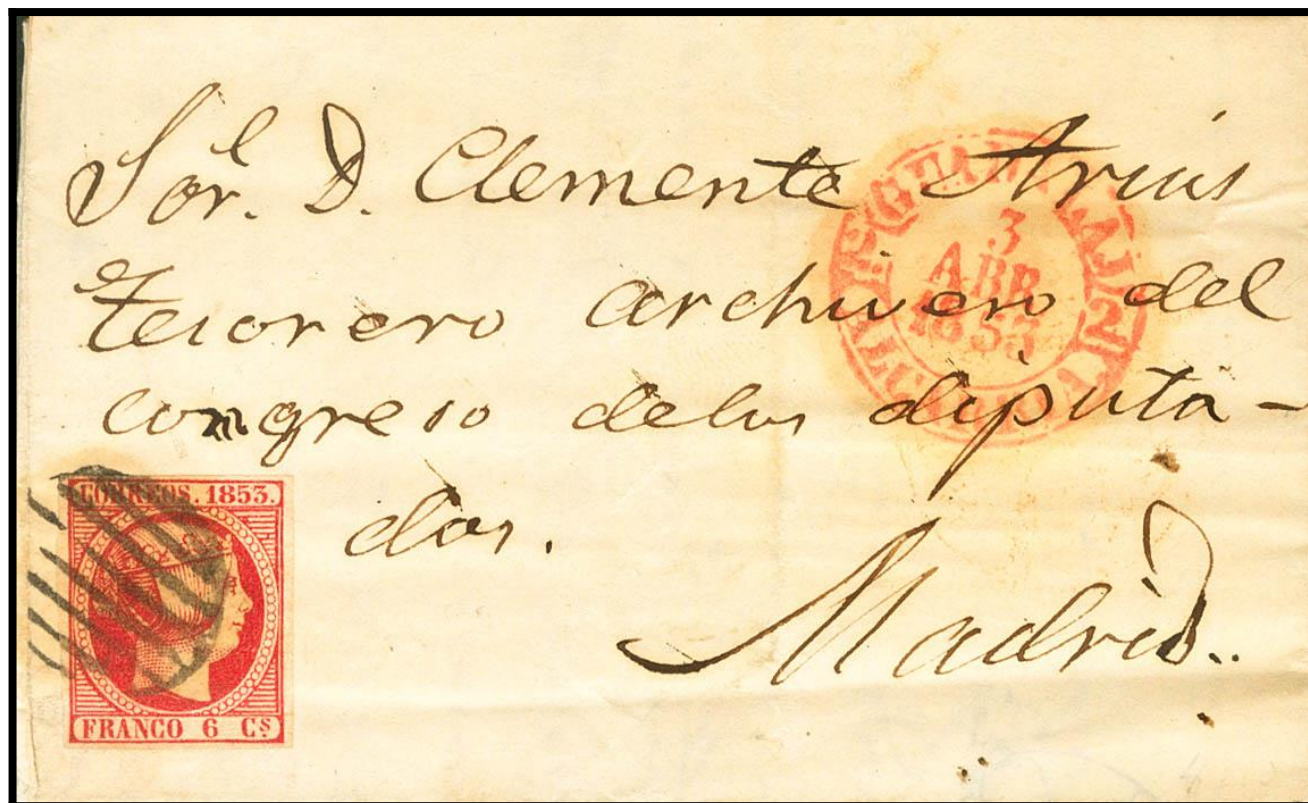 Sor. D. Clemente Arias
Tesorero archivero del
congreso delos diputa-
dos.
Madrid..
3
ABR
1853
CORREOS. 1853.
FRANCO 6 Cs